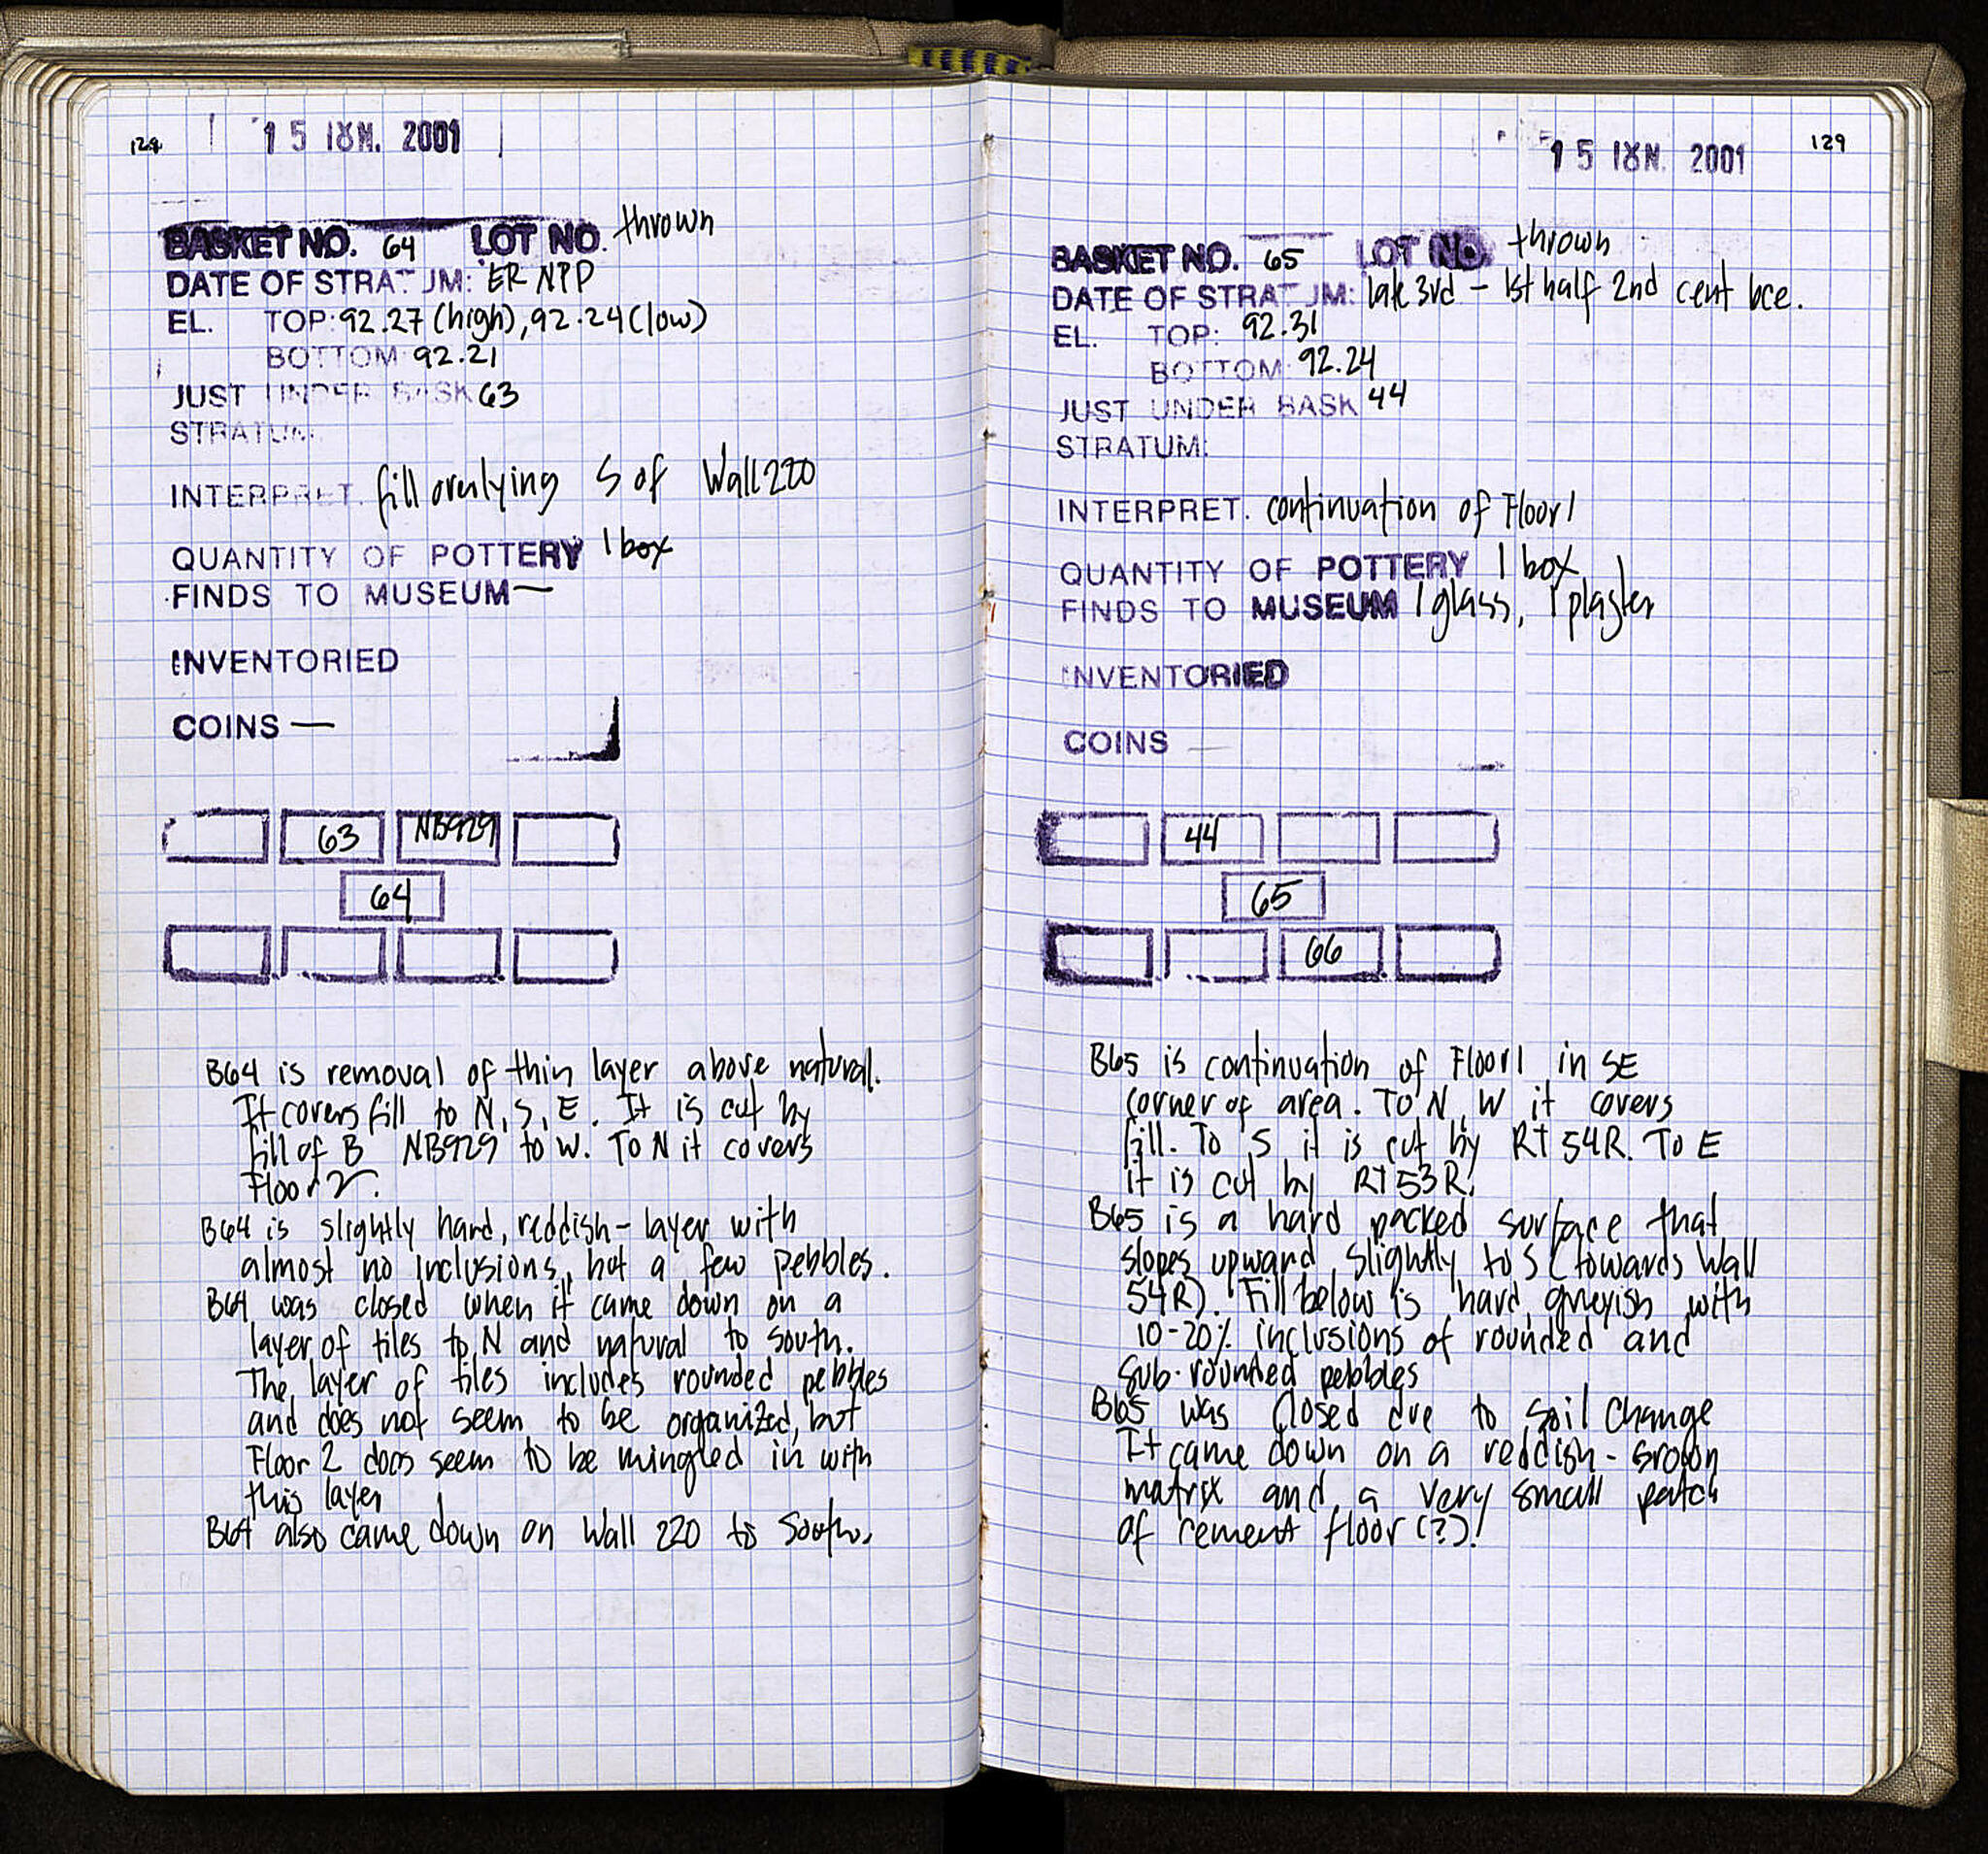 128
15 ΙΟΥΝ. 2001
BASKET NO. 64 LOT NO. thrown
DATE OF STRATUM: ER NPD
EL. TOP: 92.27 (high), 92.24 (low)
BOTTOM 92.21
JUST UNDER BASK 63
STRATUM:
INTERPRET. fill overlying S of Wall 220
QUANTITY OF POTTERY 1 box
FINDS TO MUSEUM —
INVENTORIED
COINS —
63 NB929
64
B64 is removal of thin layer above natural.
It covers fill to N, S, E. It is cut by
fill of B NB929 to W. To N it covers
Floor 2.
B64 is slightly hard, reddish - layer with
almost no inclusions, but a few pebbles.
B64 was closed when it came down on a
layer of tiles to N and natural to south.
The layer of tiles includes rounded pebbles
and does not seem to be organized, but
Floor 2 does seem to be mingled in with
this layer
B64 also came down on Wall 220 to South.
129
15 ΙΟΥΝ. 2001
BASKET NO. 65 LOT NO. thrown
DATE OF STRATUM: late 3rd - 1st half 2nd cent bce.
EL. TOP: 92.31
BOTTOM: 92.24
JUST UNDER BASK 44
STRATUM:
INTERPRET. continuation of Floor 1
QUANTITY OF POTTERY 1 box
FINDS TO MUSEUM 1 glass, 1 plaster
INVENTORIED
COINS —
44
65
66
B65 is continuation of Floor 1 in SE
corner of area. To N, W it covers
fill. To S it is cut by RT 54R. To E
it is cut by RT 53R.
B65 is a hard packed surface that
slopes upward slightly to S (towards Wall
54R). Fill below is hard, greyish with
10-20% inclusions of rounded and
sub-rounded pebbles
B65 was closed due to soil change
It came down on a reddish-brown
matrix and a very small patch
of cement floor (?).